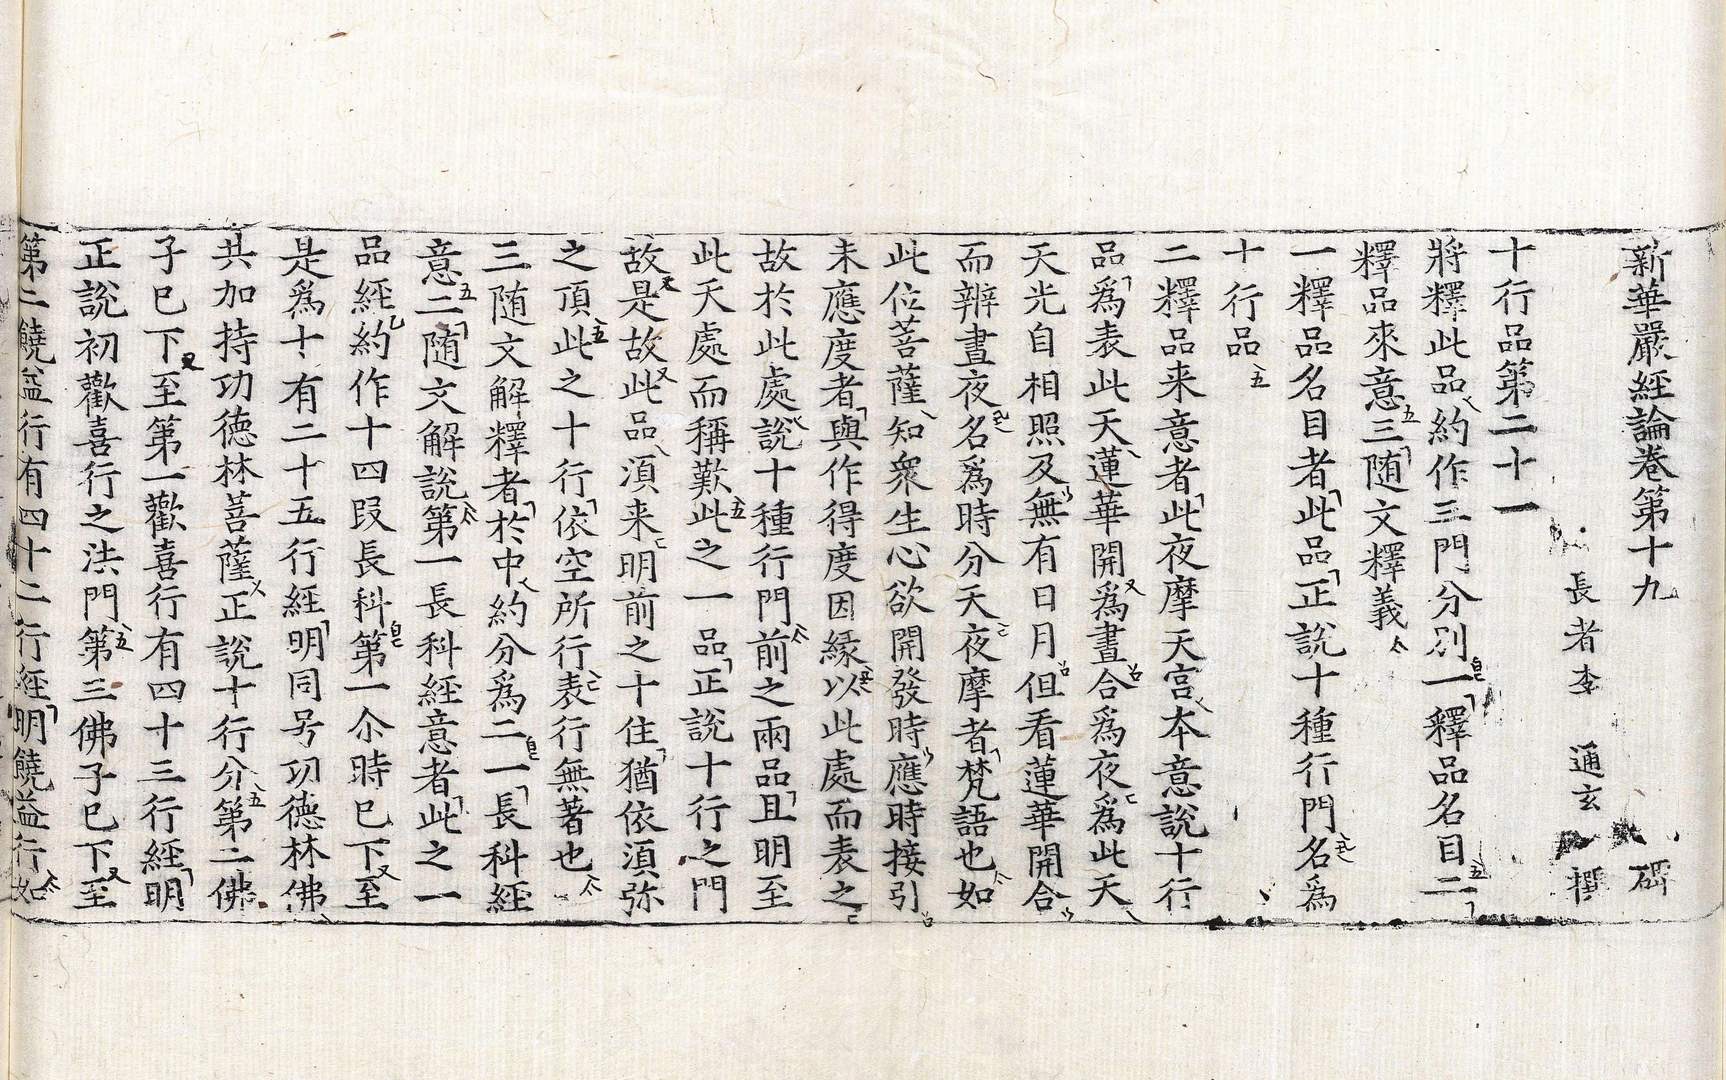 新華嚴經論卷第十九　碼
長者李　通玄　撰
十行品第二十一
將釋此品約作三門分別一釋品名目二
釋品來意三随文釋義
一釋品名目者此品正說十種行門名爲
十行品
二釋品来意者此夜摩天宮本意說十行
品爲表此天蓮華開爲晝合爲夜爲此天
天光自相照及無有日月但看蓮華開合
而辨晝夜名爲時分天夜摩者梵語也如
此位菩薩知衆生心欲開發時應時接引
未應度者與作得度因緣以此處而表之
故於此處說十種行門前之兩品且明至
此天處而稱歎此之一品正說十行之門
故是故此品湏来明前之十住猶依湏弥
之頂此之十行依空所行表行無著也
三随文解釋者於中約分爲二一長科經
意二随文解說第一長科經意者此之一
品經約作十四段長科第一尒時巳下至
是爲十有二十五行經明同号功德林佛
共加持功德林菩薩正說十行分第二佛
子巳下至第一歡喜行有四十三行經明
正說初歡喜行之法門第三佛子巳下至
第二饒益行有四十二行經明饒益行如